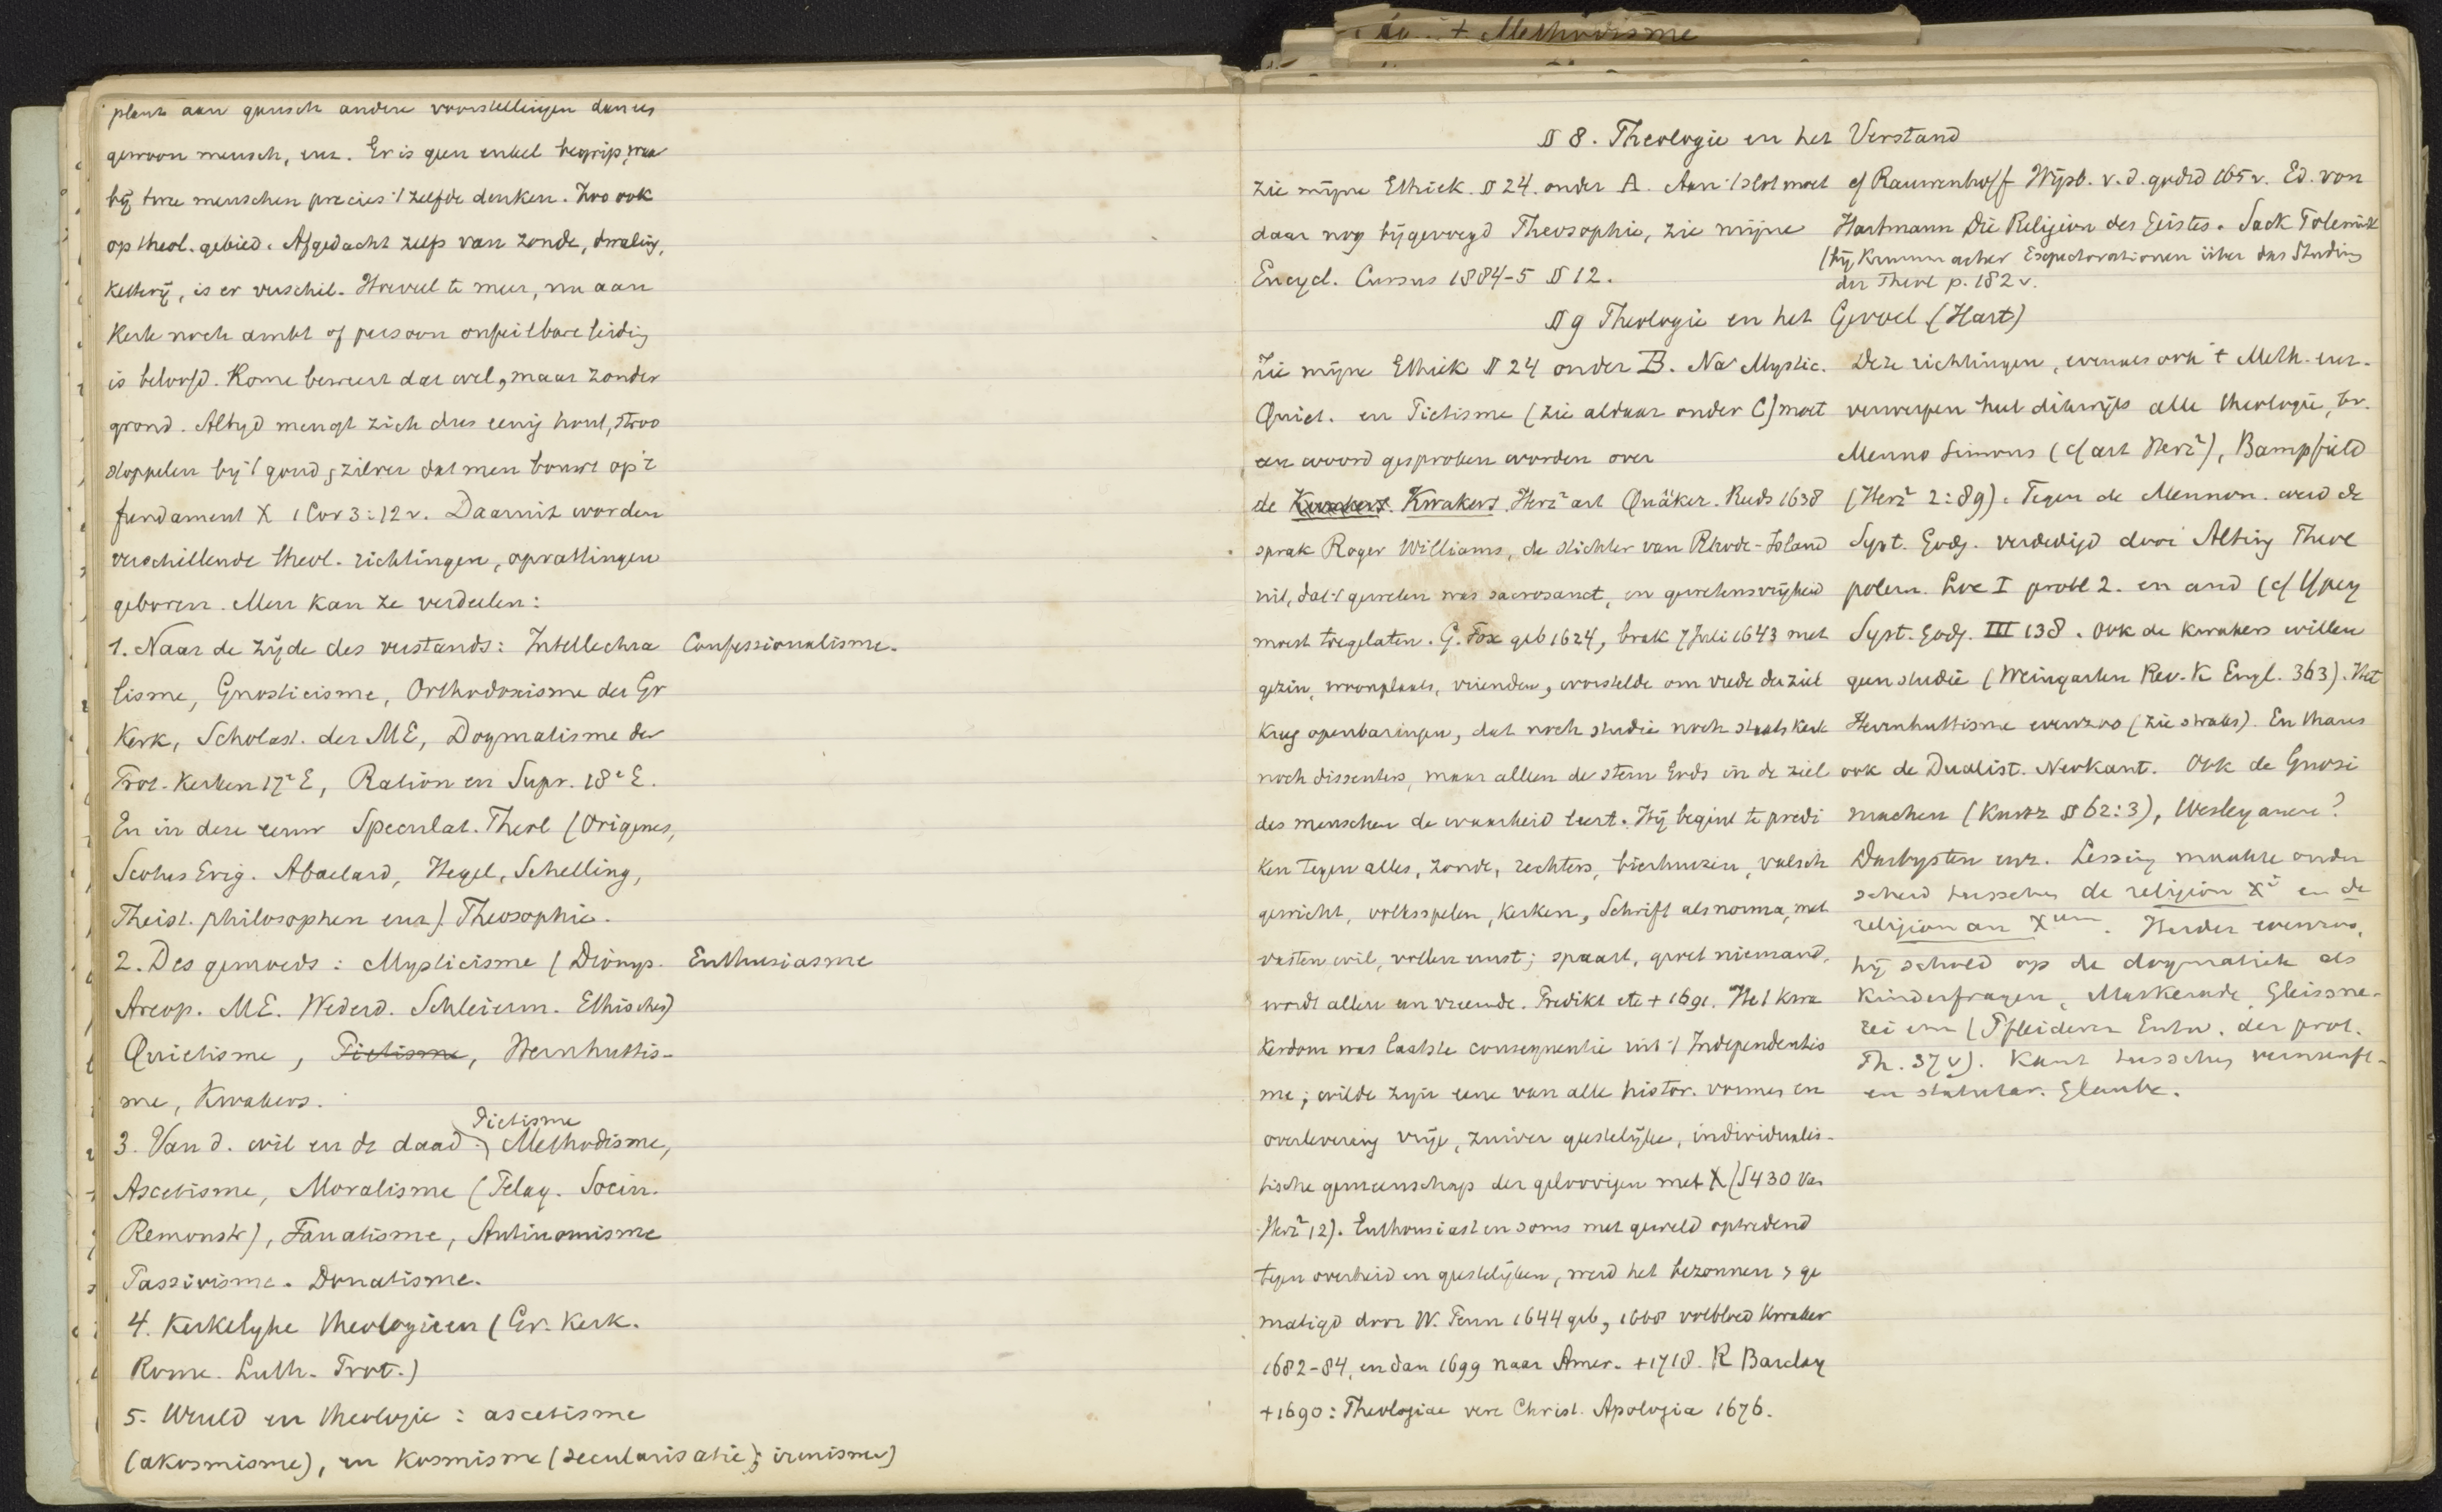 plant aan gansch andere voorstellingen dan een
gewoon mensch, enz. Er is geen enkel begrip, waar
bij twee menschen precies 't zelfde denken. Zoo ook
op theol. gebied. Afgedacht zelfs van zonde, dwaling,
ketterij, is er verschil. Hoeveel te meer, nu aan
Kerk noch ambt of persoon onfeilbare leiding
is beloofd. Rome beweert dat wel, maar zonder
grond. Altyd mengt zich dus eenig hout, stroo
stoppelen bij 't goud, zilver dat men bouwt op 't
fundament X 1 Cor 3:12v. Daaruit worden
verschillende theol. richtingen, opvattingen
geboren. Men kan ze verdeelen:
1. Naar de zijde des verstands: Intellectua Confessionalisme.
lisme, Gnosticisme, Orthodoxisme der Gr
Kerk, Scholast. der ME, Dogmatisme der
Prot. Kerken 17e E, Ration en Supr. 18e E.
En in deze eeuw Speculat. Theol (Origenes,
Scotus Erig. Abaelard, Hegel, Schelling,
Theist. philosophen enz). Theosophie.
2. Des gemoeds: Mysticisme (Dionys. Enthusiasme
Areop. ME. Wederd. Schleierm. Ethischen)
Quietisme, Pietisme, Hernhuttis-
me, Kwakers.
Pietisme
3. Van d. wil en de daad. Methodisme,
Ascetisme, Moralisme (Pelag. Socin.
Remonstr), Fanatisme, Antinomisme
Passivisme. Donatisme.
4. Kerkelyke theologieen (Gr. Kerk.
Rome. Luth. Prot.)
5. Wereld en theologie: ascetisme
(akosmisme), en Kosmisme (secularisatie); irenisme)
+ Methodisme
§ 8. Theologie en het Verstand
Zie mijne Ethiek. § 24. onder A. Aan 't slot moet
daar nog bijgevoegd Theosophie, zie mijne
Encycl. Cursus 1884-5 § 12.
cf Rauwenhoff Wijsb. v. d. godsd 165v. Ed. von
Hartmann Die Religion des Geistes. Sack Polemik
(bij Krummacher Expectorationen über das Studium
der Theol p. 182v.
§ 9 Theologie en het Gevoel (Hart)
Zie mijne Ethiek § 24 onder B. Na Mystic.
Quiet. en Pietisme (zie aldaar onder C) moet
een woord gesproken worden over
de Kwakers. Kwakers. Herz² art Quäker. Reeds 1638
sprak Roger Williams, de stichter van Rhode-Island
uit, dat 't geweten was sacrosanct, en gewetensvrijheid
moest toegelaten. G. Fox geb 1624, brak 7 Juli 1643 met
gezin, woonplaats, vrienden, worstelde om vrede der ziel
kreeg openbaringen, dat noch studie noch staatskerk
noch dissenters, maar alleen de stem Gods in de ziel
des menschen de waarheid leert. Hij begint te predi
ken tegen alles, zonde, rechters, bierhuizen, valsch
gewicht, volksspelen, kerken, Schrift als norma, met
vasten wil, vollen ernst; spaart, groet niemand,
wordt allen een vreemde. Predikt etc + 1691. Het Kwa
kerdom was laatste consequentie uit 't Independentis
me; wilde zyn eene van alle histor. vormen en
overlevering vrije, zuiver geestelijke, individualis-
tische gemeenschap der geloovigen met X (S 430 van
Herz² 12). Enthousiasten soms met geweld optredend
tegen overheid en geestelijken, werd het bezonnen & ge
matigd door W. Penn 1644 geb, 1668 volbloed Kwaker
1682-84, en dan 1699 naar Amer. +1718. R Barclay
+1690: Theologiae vere Christ. Apologia 1676.
Deze richtingen, evenals ook 't Meth. enz.
verwerpen heel dikwijls alle theologie, bv.
Menno Simons (cf art Herz²), Bampfield
(Herz² 2:89). Tegen de Mennon. werd de
Syst. Godg. verdedigd door Alting Theol
polem. Loc I probl 2. en and (cf Ypey
Syst. Godg. III 138. Ook de kwakers willen
geen studie (Weingarten Rev. K Engl. 363). Het
Hernhuttisme evenzoo (zie straks). En thans
ook de Dualist. Neokant. Ook de Gnosi
machen (Kurtz § 62:3), Wesleyanen?
Darbysten enz. Lessing maakte onder
scheid tusschen de religion Xi en de
religion an Xum. Herder evenzoo,
hij schold op de dogmatiek als
Kinderfragen, Maskerade, Gleissne-
rei enz (Pfleiderer Entw. der prot.
Th. 37 v). Kant tusschen vernunft-
en statutar. Glaube.